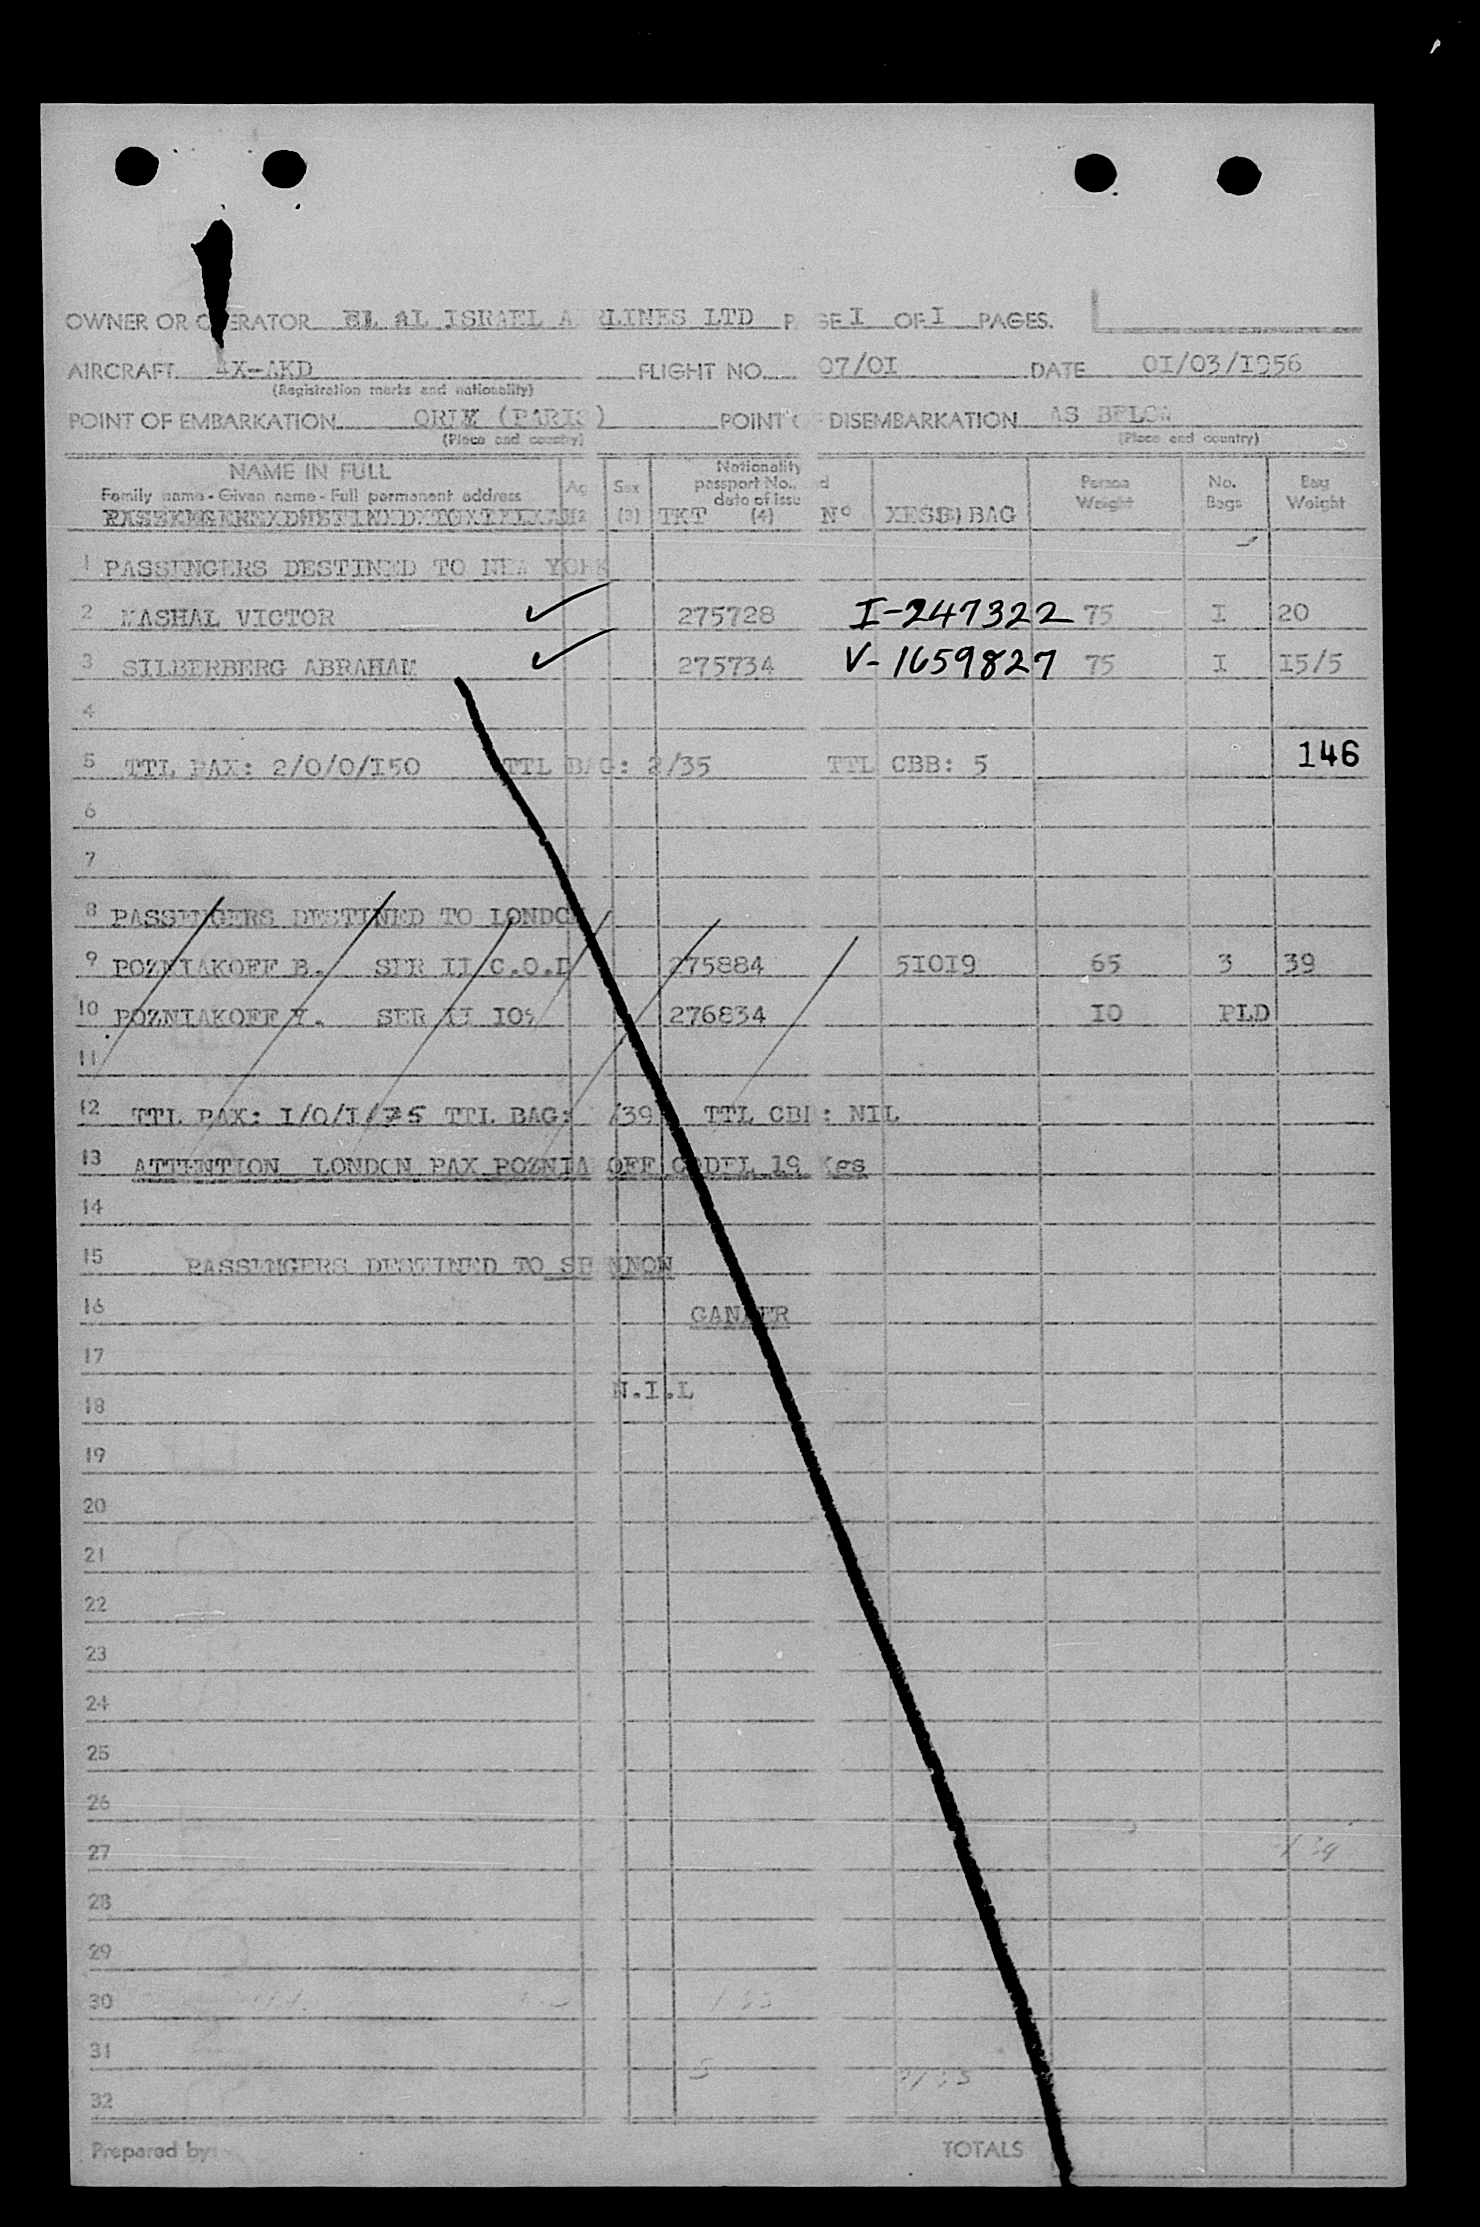 OWNER OR OPERATOR EL AL ISRAEL AIRLINES LTD PAGE I OF I PAGES.
AIRCRAFT 4X-AKD FLIGHT NO. 07/OI DATE OI/03/I956
(Registration marks and nationality)
POINT OF EMBARKATION ORLY (PARIS) POINT OF DISEMBARKATION AS BELOW
(Place and country) (Place and country)
NAME IN FULL Age Sex Nationality Person No. Bag
Family name - Given name - Full permanent address passport No. and Weight Bags Weight
date of issue
(3) TKT (4) Nº BAG
1 PASSENGERS DESTINED TO NEW YORK
2 MASHAL VICTOR 275728 I-247322 75 I 20
3 SILBERBERG ABRAHAM 275734 V-1659827 75 I I5/5
4
5 TTL PAX: 2/0/0/I50 TTL BAG: 2/35 TTL CBB: 5 146
6
7
8 PASSENGERS DESTINED TO LONDON
9 POZNIAKOFF B. SER II C.O.D 275884 5I0I9 65 3 39
10 POZNIAKOFF Y. SER II IO% 276834 IO PLD
11
12 TTL PAX: I/0/I/75 TTL BAG: /39 TTL CBB: NIL
13 ATTENTION LONDON PAX POZNIAKOFF 19 Kgs
14
15 PASSENGERS DESTINED TO SHANNON
16 GANDER
17
18 N.I.L
19
20
21
22
23
24
25
26
27
28
29
30
31
32
Prepared by: TOTALS